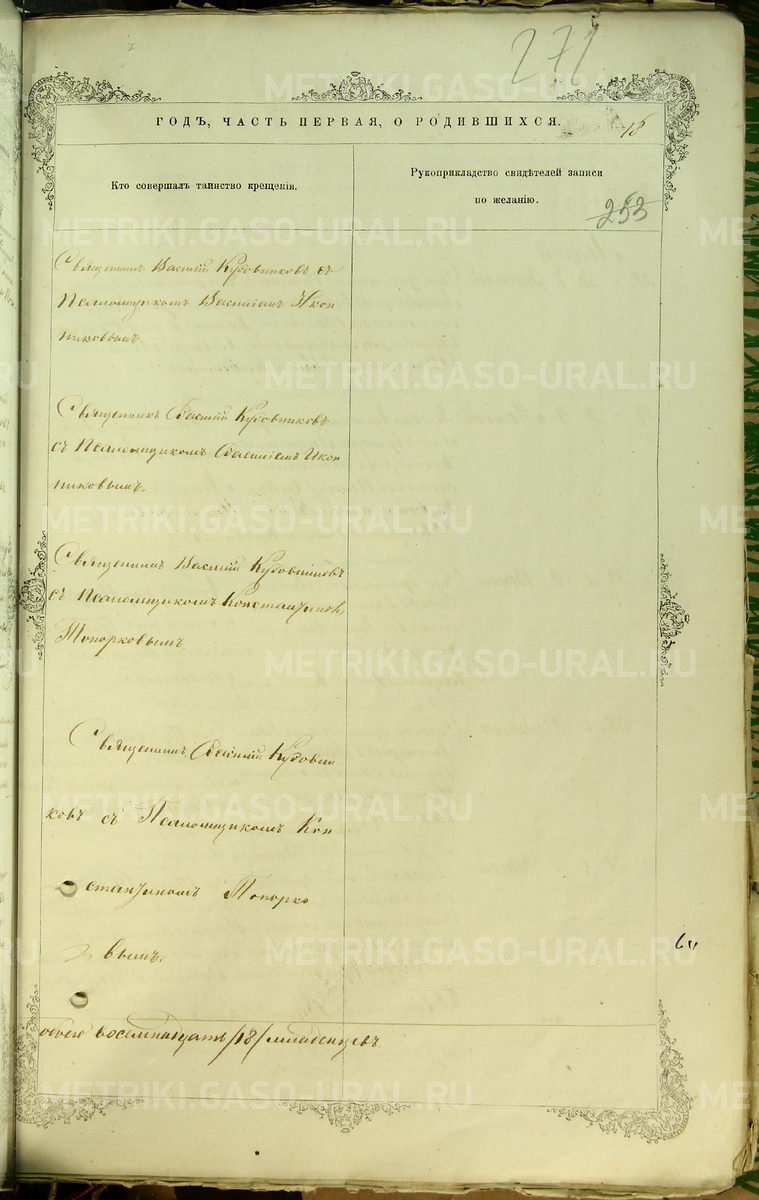 271
ГОДЪ, ЧАСТЬ ПЕРВАЯ, О РОДИВШИХСЯ.
18
Кто совершалъ таинство крещенія.
Рукоприкладство свидѣтелей записи
по желанію.
253
Священникъ Василій Кудовниковъ съ
Псаломщикомъ Василіемъ Икон
никовымъ.
Священникъ Василій Кудовниковъ
съ Псаломщикомъ Василіемъ Икон
никовымъ.
Священникъ Василій Кудовниковъ
съ Псаломщикомъ Константином
Топорковымъ.
Священникъ Василій Кудовни
ковъ съ Псаломщикомъ Кон
стантиномъ Топорко
вымъ.
обоего восемнадцать /18/ младенцевъ.
METRIKI.GASO-URAL.RU